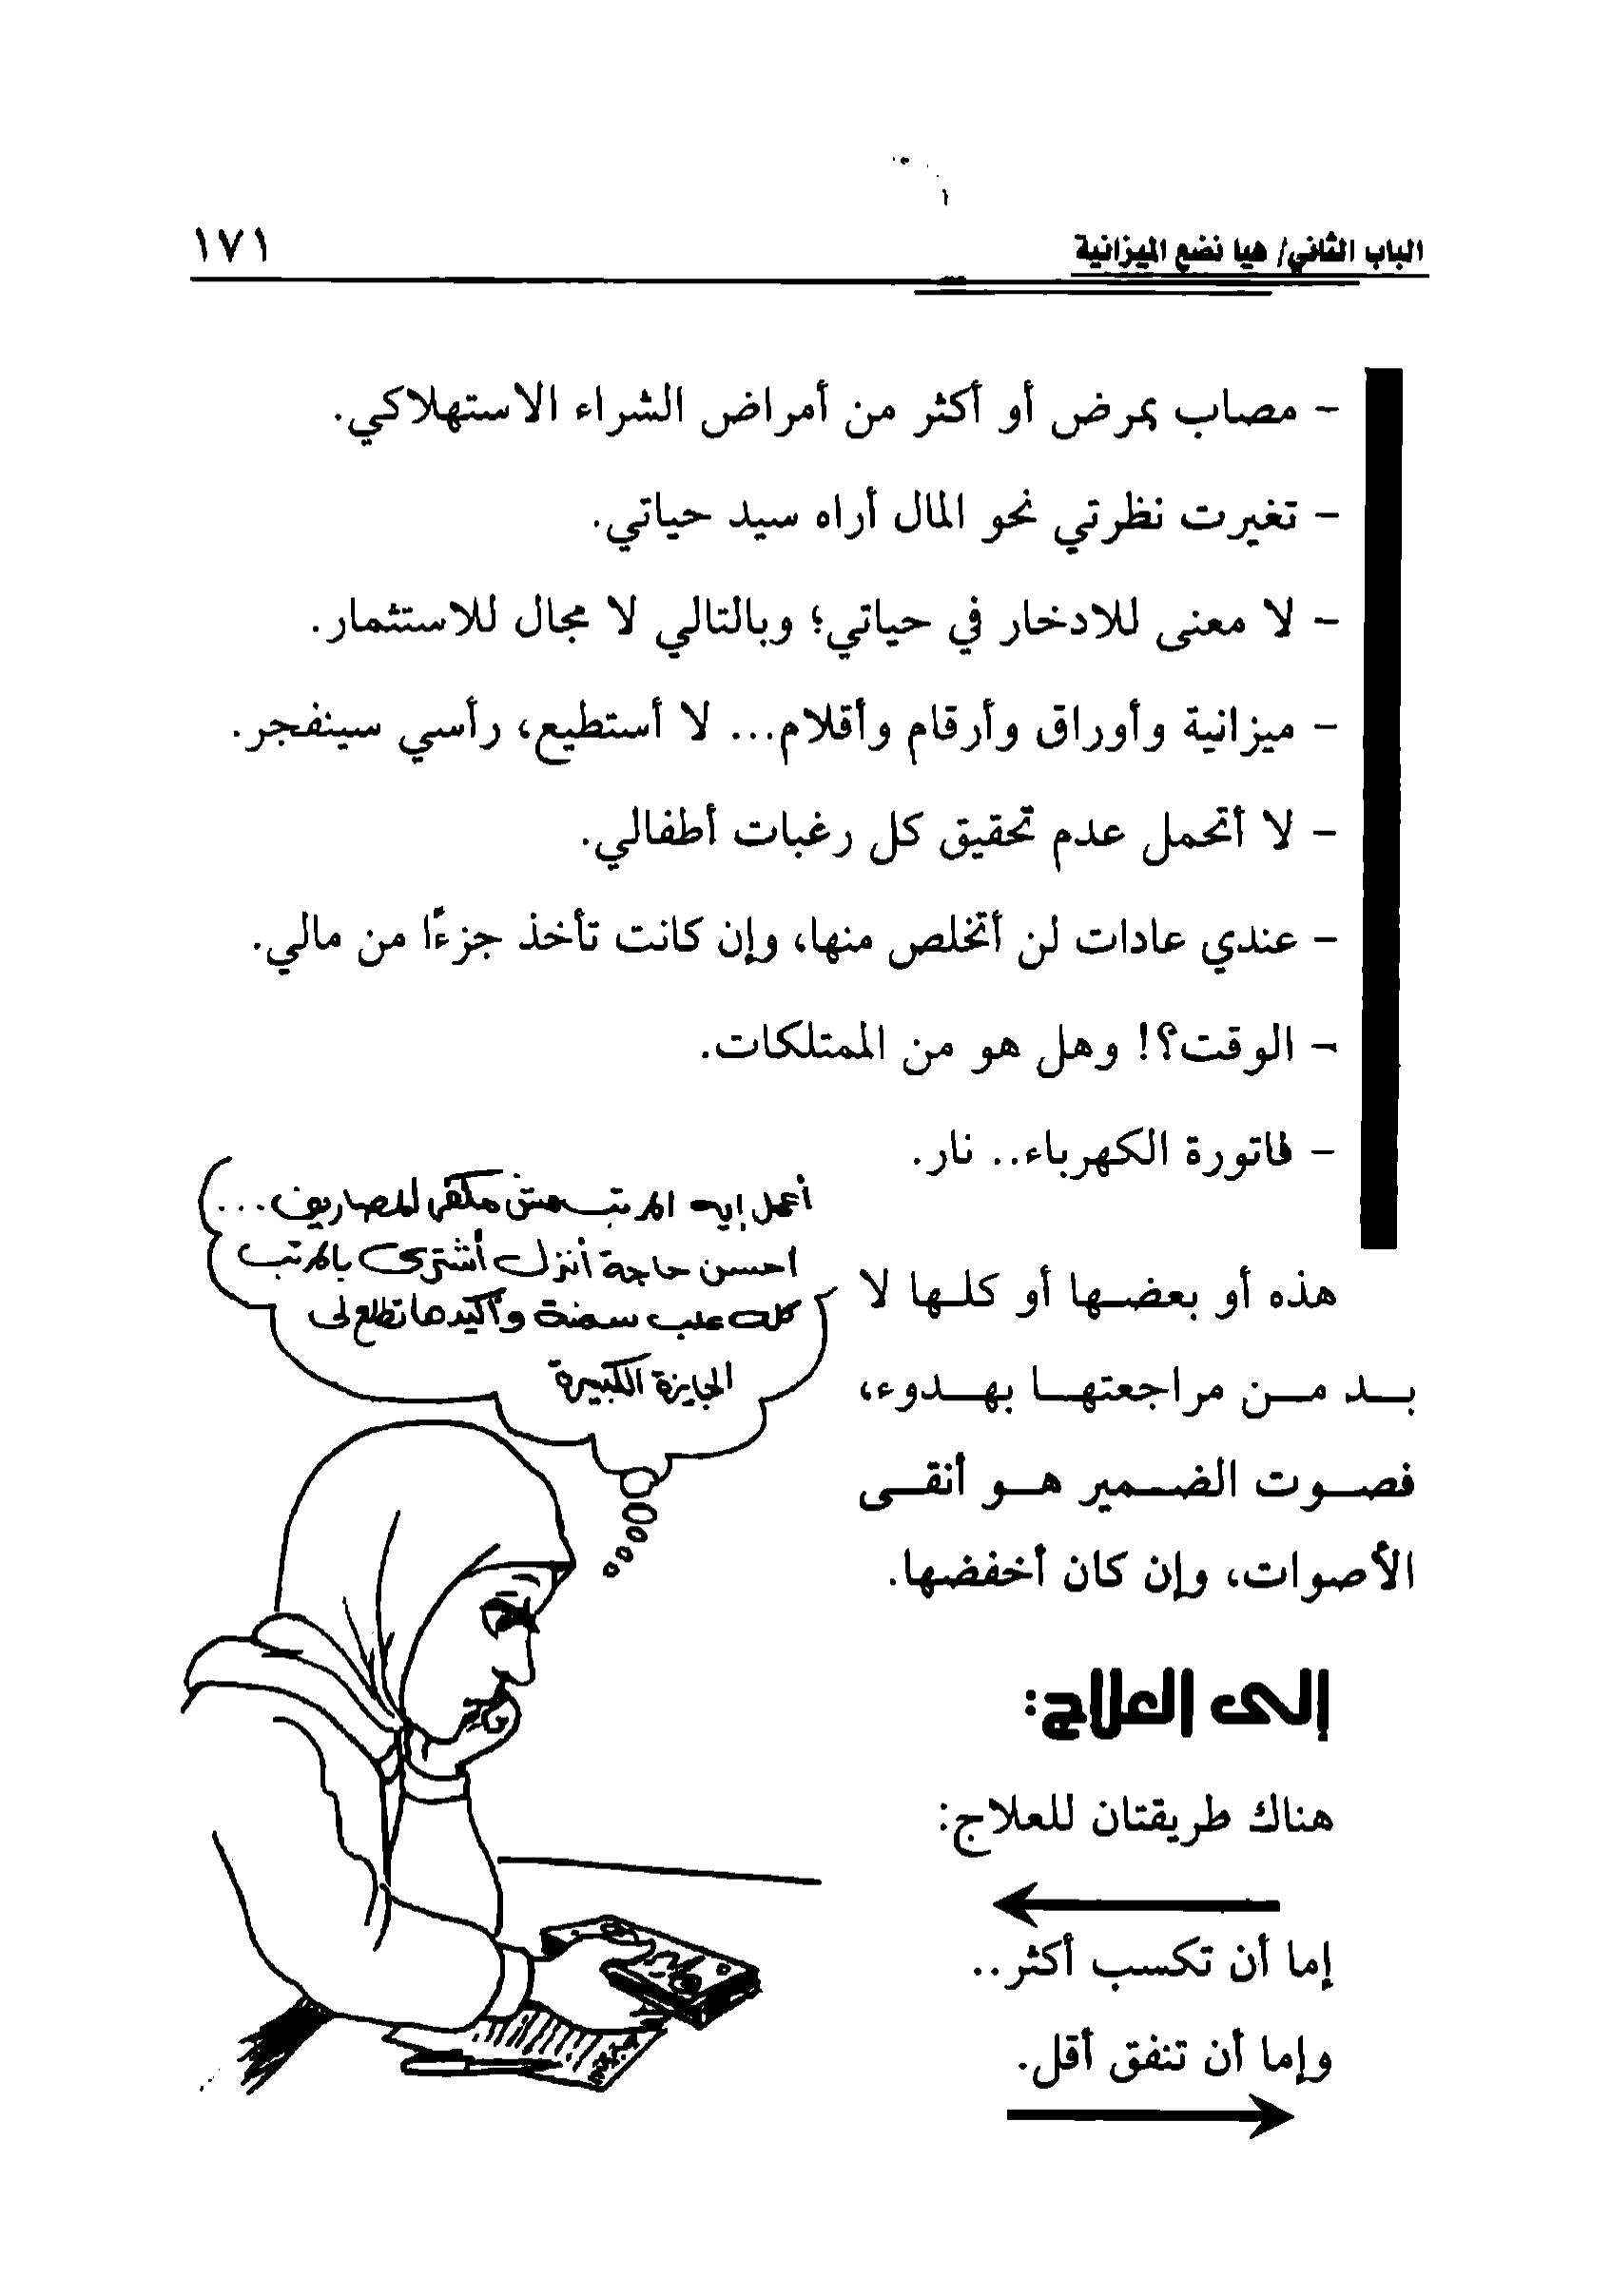 الباب الثاني/ هيا نضع الميزانية ١٧١
- مصاب بمرض أو أكثر من أمراض الشراء الاستهلاكي.
- تغيرت نظرتي نحو المال أراه سيد حياتي.
- لا معنى للادخار في حياتي؛ وبالتالي لا مجال للاستثمار.
- ميزانية وأوراق وأرقام وأقلام... لا أستطيع، رأسي سينفجر.
- لا أتحمل عدم تحقيق كل رغبات أطفالي.
- عندي عادات لن أتخلص منها، وإن كانت تأخذ جزءًا من مالي.
- الوقت؟! وهل هو من الممتلكات.
- فاتورة الكهرباء.. نار.
أعمل إيه المرتب مش مكفى المصاريف...
احسن حاجة أنزل أشترى بالمرتب
كله علب سمنة وأكيد هاتطلع لى
الجايزة الكبيرة
هذه أو بعضها أو كلها لا
بد من مراجعتها بهدوء،
فصوت الضمير هو أنقى
الأصوات، وإن كان أخفضها.
إلى العلاج:
هناك طريقتان للعلاج:
إما أن تكسب أكثر..
وإما أن تنفق أقل.